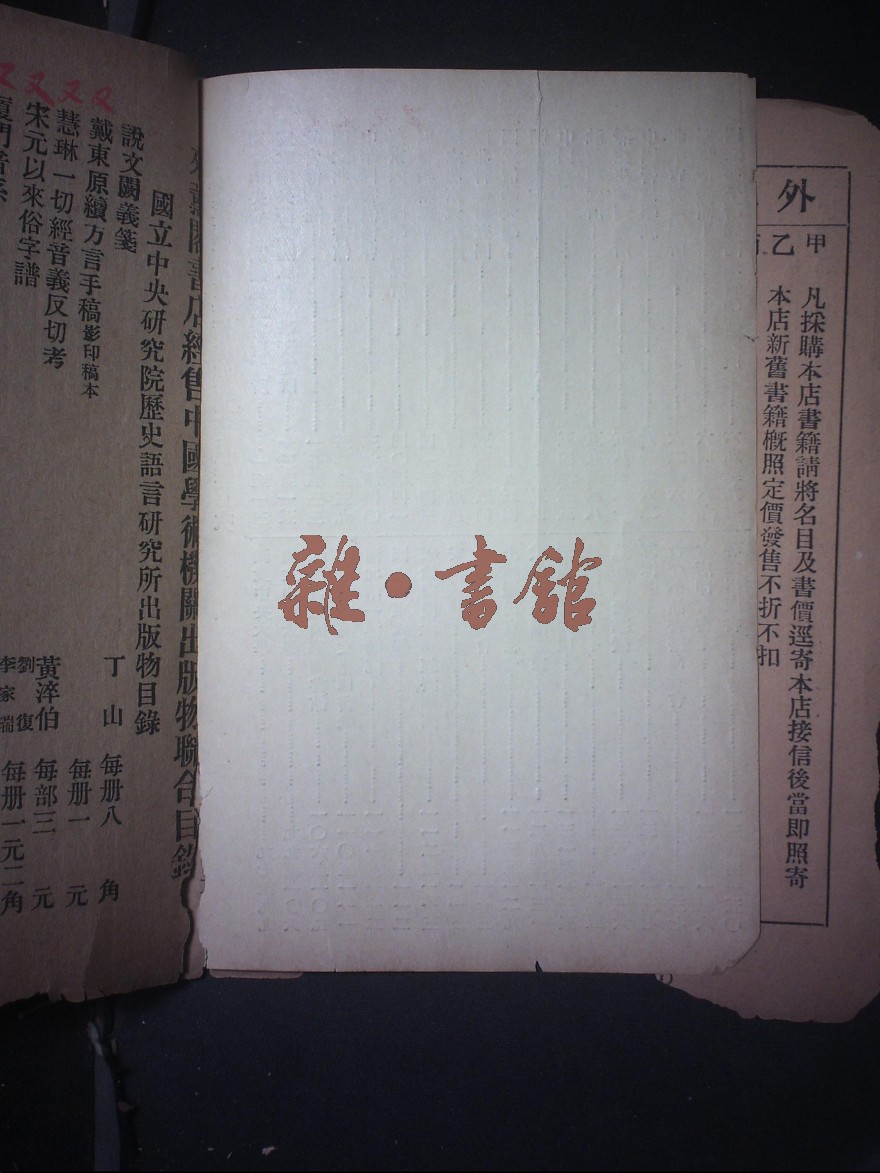 外
甲
凡採購本店書籍請將名目及書價逕寄本店接信後當即照寄
乙
本店新舊書籍概照定價發售不折不扣
雜・書館
書店經售中國學術機關出版物聯合目錄
國立中央研究院歷史語言研究所出版物目錄
說文闕義箋 丁山 每册八角
又 戴東原續方言手稿影印稿本 每册一元
又 慧琳一切經音義反切考 黃淬伯 每部三元
又 宋元以來俗字譜 劉復 李家瑞 每册一元二角
又 廈門音系